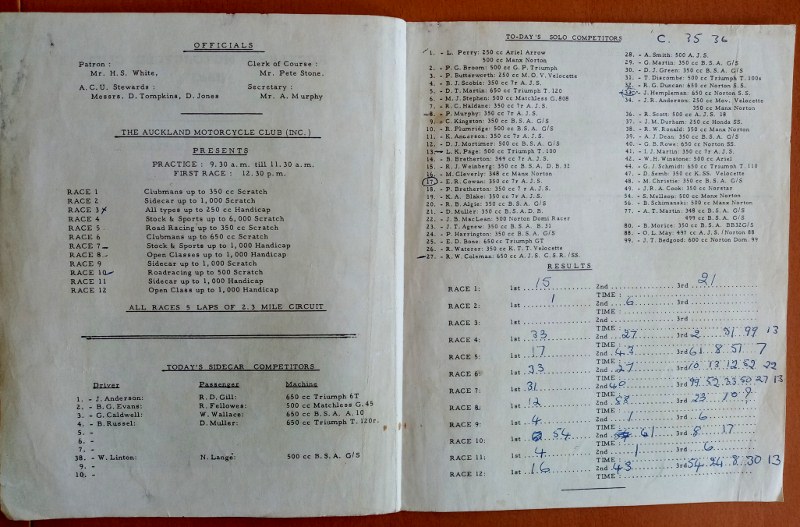 OFFICIALS
Patron : Clerk of Course :
Mr. H.S. White, Mr. Pete Stone.
A.C.U. Stewards : Secretary :
Messrs. D. Tompkins, D. Jones Mr. A. Murphy
THE AUCKLAND MOTORCYCLE CLUB (INC.)
PRESENTS
PRACTICE : 9.30 a.m. till 11.30 a.m.
FIRST RACE : 12.30 p.m.
RACE 1 Clubmans up to 350 cc Scratch
RACE 2 Sidecar up to 1,000 Scratch
RACE 3 All types up to 250 cc Handicap
RACE 4 Stock & Sports up to 6,000 Scratch
RACE 5 Road Racing up to 350 cc Scratch
RACE 6 Clubmans up to 650 cc Scratch
RACE 7 Stock & Sports up to 1,000 Handicap
RACE 8 Open Classes up to 1,000 Handicap
RACE 9 Sidecar up to 1,000 Scratch
RACE 10 Roadracing up to 500 Scratch
RACE 11 Sidecar up to 1,000 Handicap
RACE 12 Open Class up to 1,000 Handicap
ALL RACES 5 LAPS OF 2.3 MILE CIRCUIT
TODAY'S SIDECAR COMPETITORS
Driver Passenger Machine
1. - J. Anderson: R.D. Gill: 650 cc Triumph 6T
2. - B.G. Evans: R. Fellowes: 500 cc Matchless G.45
3. - G. Caldwell: W. Wallace: 650 cc B.S.A. A.10
4. - B. Russel: D. Muller: 650 cc Triumph T.120r.
5. -
6. -
7. -
38. - W. Linton: N. Lange: 500 cc B.S.A. G/S
9. -
10. -
TO-DAY'S SOLO COMPETITORS C. 35 36
1. - L. Perry: 250 cc Ariel Arrow
500 cc Manx Norton
2. - P.G. Broom: 500 cc G.P. Triumph
3. - P. Butterworth: 250 cc M.O.V. Velocette
4. - B.J. Scobie: 350 cc 7r A.J.S.
5. - D.T. Martin: 650 cc Triumph T.120
6. - M.J. Stephen: 500 cc Matchless G.80S
7. - R.C. Haldane: 350 cc 7r A.J.S.
8. - P. Murphy: 350 cc 7r A.J.S.
9. - C. Kingston: 350 cc B.S.A. G/S
10. - R. Plumridge: 500 cc B.S.A. G/S
11. - K. Anderson: 350 cc 7r A.J.S.
12. - D.J. Mortimer: 500 cc B.S.A. G/S
13. - L.K. Page: 500 cc Triumph T.100
14. - B. Bretherton: 349 cc 7r A.J.S.
15. - R.J. Weinberg: 350 cc B.S.A. D.B. 32
16. - M. Cleverly: 348 cc Manx Norton
17. - E.R. Cowan: 350 cc 7r A.J.S.
18. - P. Bretherton: 350 cc 7 r A.J.S.
19. - K.A. Blake: 350 cc 7r A.J.S.
20. - R.D. Algie: 350 cc B.S.A. G/S
21. - D. Muller: 350 cc B.S.A. D.B.
22. - J.B. MacLean: 500 Norton Domi Racer
23. - J.T. Agrew: 350 cc B.S.A. B.31
24. - P. Herrington: 350 cc B.S.A. G/S
25. - E.D. Bone: 650 cc Triumph GT
26. - R. Waterer: 350 cc K.T.T. Velocette
27. - R.W. Coleman: 650 cc A.J.S. C.S.R./SS.
28. - A. Smith: 500 A.J.S.
29. - G. Martin: 350 cc B.S.A. G/S
30. - D.J. Green: 350 cc B.S.A. G/S
31. - T. Discombe: 500 cc Triumph T.100s
32. - R.G. Duncan: 650 cc Norton S.S.
33. - J. Hempleman: 650 cc Norton S.S.
34. - J.R. Anderson: 250 cc Mov. Velocette
350 cc Manx Norton
36. - R. Scott: 500 cc A.J.S. 18
37. - J.M. Durham: 250 cc Honda SS.
38. - R.W. Ronald: 350 cc Manx Norton
39. - A.J. Dean: 350 cc B.S.A. G/S
40. - G.B. Rowe: 650 cc Norton SS.
41. - I.J. Martin: 350 cc 7r A.J.S.
42. - W.H. Winstone: 500 cc Ariel
44. - G.J. Schmidt: 650 cc Triumph T.110
47. - D. Senib: 350 cc K.SS. Velocette
48. - M. Christie: 350 cc B.S.A. G/S
49. - J.B.A. Cook: 350 cc Norstar
54. - E. McIleon: 500 cc Manx Norton
56. - B. Schimanski: 500 cc Manx Norton
77. - A.T. Martin: 348 cc B.S.A. G/S
499 cc B.S.A. G/S
80. - B. Morice: 350 cc B.S.A. BB32G/S
88. - O.L. May: 497 cc A.J.S./Norton 88
99. - J.T. Bedgood: 600 cc Norton Dom. 99
RESULTS
RACE 1: 1st 15 2nd 3rd 21
TIME :
RACE 2: 1st 1 2nd 6 3rd
TIME :
RACE 3: 1st 2nd 3rd
TIME :
RACE 4: 1st 33 2nd 27 3rd 2 31 99 13
TIME :
RACE 5: 1st 17 2nd 43 3rd 61 8 51 7
TIME :
RACE 6: 1st 23 2nd 27 3rd 10 13 12 52 22
TIME :
RACE 7: 1st 31 2nd 40 3rd 99 52 33 50 27 13
TIME :
RACE 8: 1st 12 2nd 58 3rd 23 10 9
TIME :
RACE 9: 1st 4 2nd 1 3rd 6
TIME :
RACE 10: 1st 54 2nd 61 3rd 8 17
TIME :
RACE 11: 1st 4 2nd 1 3rd 6
TIME :
RACE 12: 1st 16 2nd 43 3rd 54 34 8 30 13
TIME :